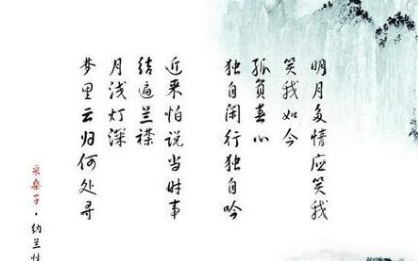 明月多情应笑我
笑我如今
孤负春心
独自闲行独自吟
近来怕说当时事
结遍兰襟
月浅灯深
梦里云归何处寻
采桑子·纳兰性